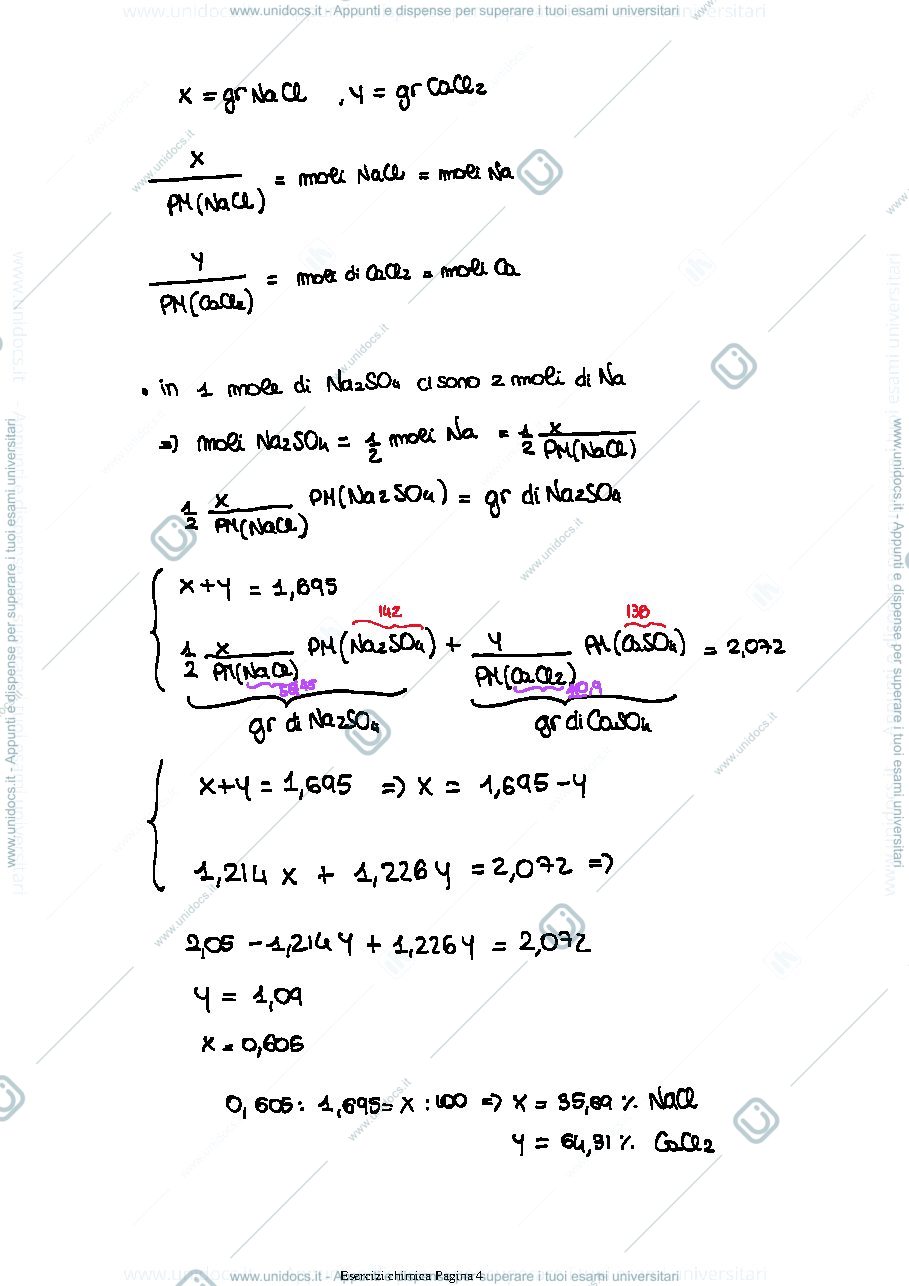 www.unidocs.it - Appunti e dispense per superare i tuoi esami universitari
x = gr NaCl , y = gr CaCl2
x / PM(NaCl) = moli NaCl = moli Na
y / PM(CaCl2) = moli di CaCl2 = moli Ca
• in 1 mole di Na2SO4 ci sono 2 moli di Na
=> moli Na2SO4 = 1/2 moli Na = 1/2 x / PM(NaCl)
1/2 x / PM(NaCl) PM(Na2SO4) = gr di Na2SO4
x + y = 1,695
142 138
1/2 x / PM(NaCl) PM(Na2SO4) + y / PM(CaCl2) PM(CaSO4) = 2,072
gr di Na2SO4 gr di CaSO4
x+y = 1,695 => x = 1,695 - y
1,214 x + 1,226 y = 2,072 =>
2,05 - 1,214 y + 1,226 y = 2,072
y = 1,09
x = 0,605
0,605 : 1,695 = x : 100 => x = 35,69 % NaCl
y = 64,31 % CaCl2
Esercizi chimica Pagina 4
www.unidocs.it - Appunti e dispense per superare i tuoi esami universitari
www.unidocs.it - Appunti e dispense per superare i tuoi esami universitari
www.unidocs.it - Appunti e dispense per superare i tuoi esami universitari